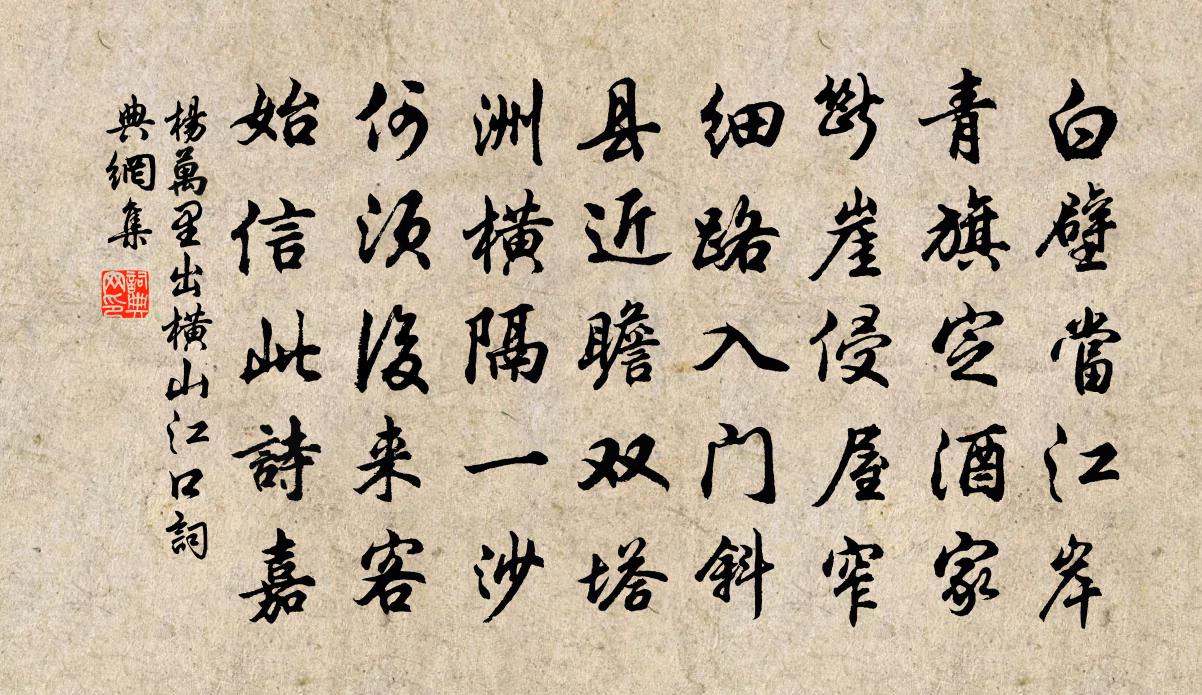 白壁當江岸
青旗定酒家
斷崖侵屋窄
细路入门斜
县近瞻双塔
洲橫隔一沙
何須後来客
始信此詩嘉
楊萬里出橫山江口詞
典網集
詞典
网印